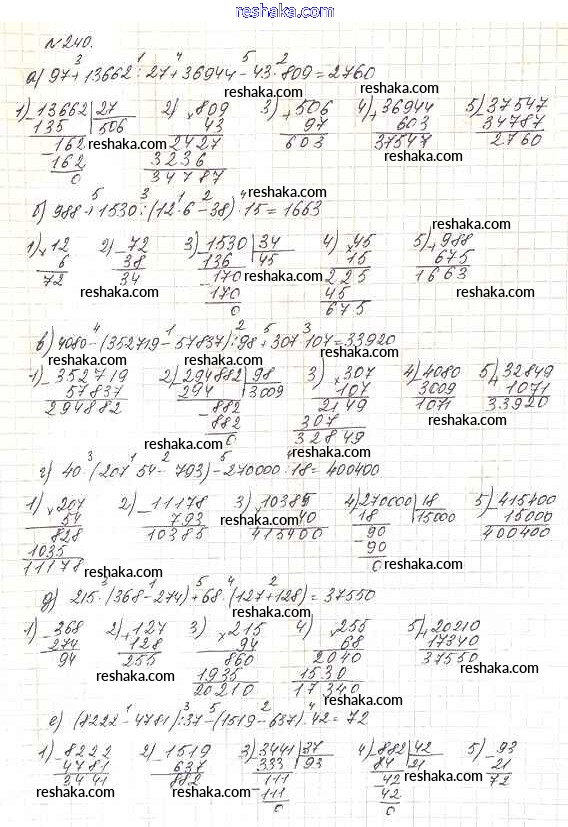 www.reshaka.com
№240.
3 1 4 5 2
а) 97+13662:27+36944-43·809=2760
reshaka.com
1) 13662 | 27 2) ×809 3) +506 4) +36944 5) -37547
135 506 43 97 603 34787
-162 2427 603 37547 2760
162 3236
0 34787
reshaka.com reshaka.com reshaka.com
5 3 1 2 4
б) 988+1530:(12·6-38)·15=1663
1) ×12 2) -72 3) 1530 | 34 4) ×45 5) +988
6 38 136 45 15 675
72 34 -170 225 1663
170 45
0 675
reshaka.com reshaka.com reshaka.com
4 1 2 5 3
в) 4080-(352719-57837):98+307·107=33920
reshaka.com reshaka.com reshaka.com
1) -352719 2) -294882 | 98 3) ×307 4) -4080 5) 32849
57837 294 3009 107 3009 + 1071
294882 -882 2149 1071 33920
882 307
0 32849
reshaka.com reshaka.com
3 1 2 5 4
г) 40·(207·54-793)-270000:18=400400
reshaka.com reshaka.com
1) ×207 2) -11178 3) ×10385 4) 270000 | 18 5) -415400
54 793 40 18 15000 15000
828 10385 415400 -90 400400
1035 90
11178 0
reshaka.com reshaka.com reshaka.com
3 1 5 4 2
д) 215·(368-274)+68·(127+128)=37550
reshaka.com
1) -368 2) +127 3) ×215 4) ×255 5) +20210
274 128 94 68 17340
94 255 860 2040 37550
1935 1530
20210 17340
reshaka.com reshaka.com reshaka.com
1 3 5 2 4
е) (8222-4781):37-(1519-637):42=72
reshaka.com reshaka.com reshaka.com
1) -8222 2) -1519 3) 3441 | 37 4) -882 | 42 5) -93
4781 637 333 93 84 21 21
3441 882 -111 -42 72
111 42
0 0
reshaka.com reshaka.com reshaka.com